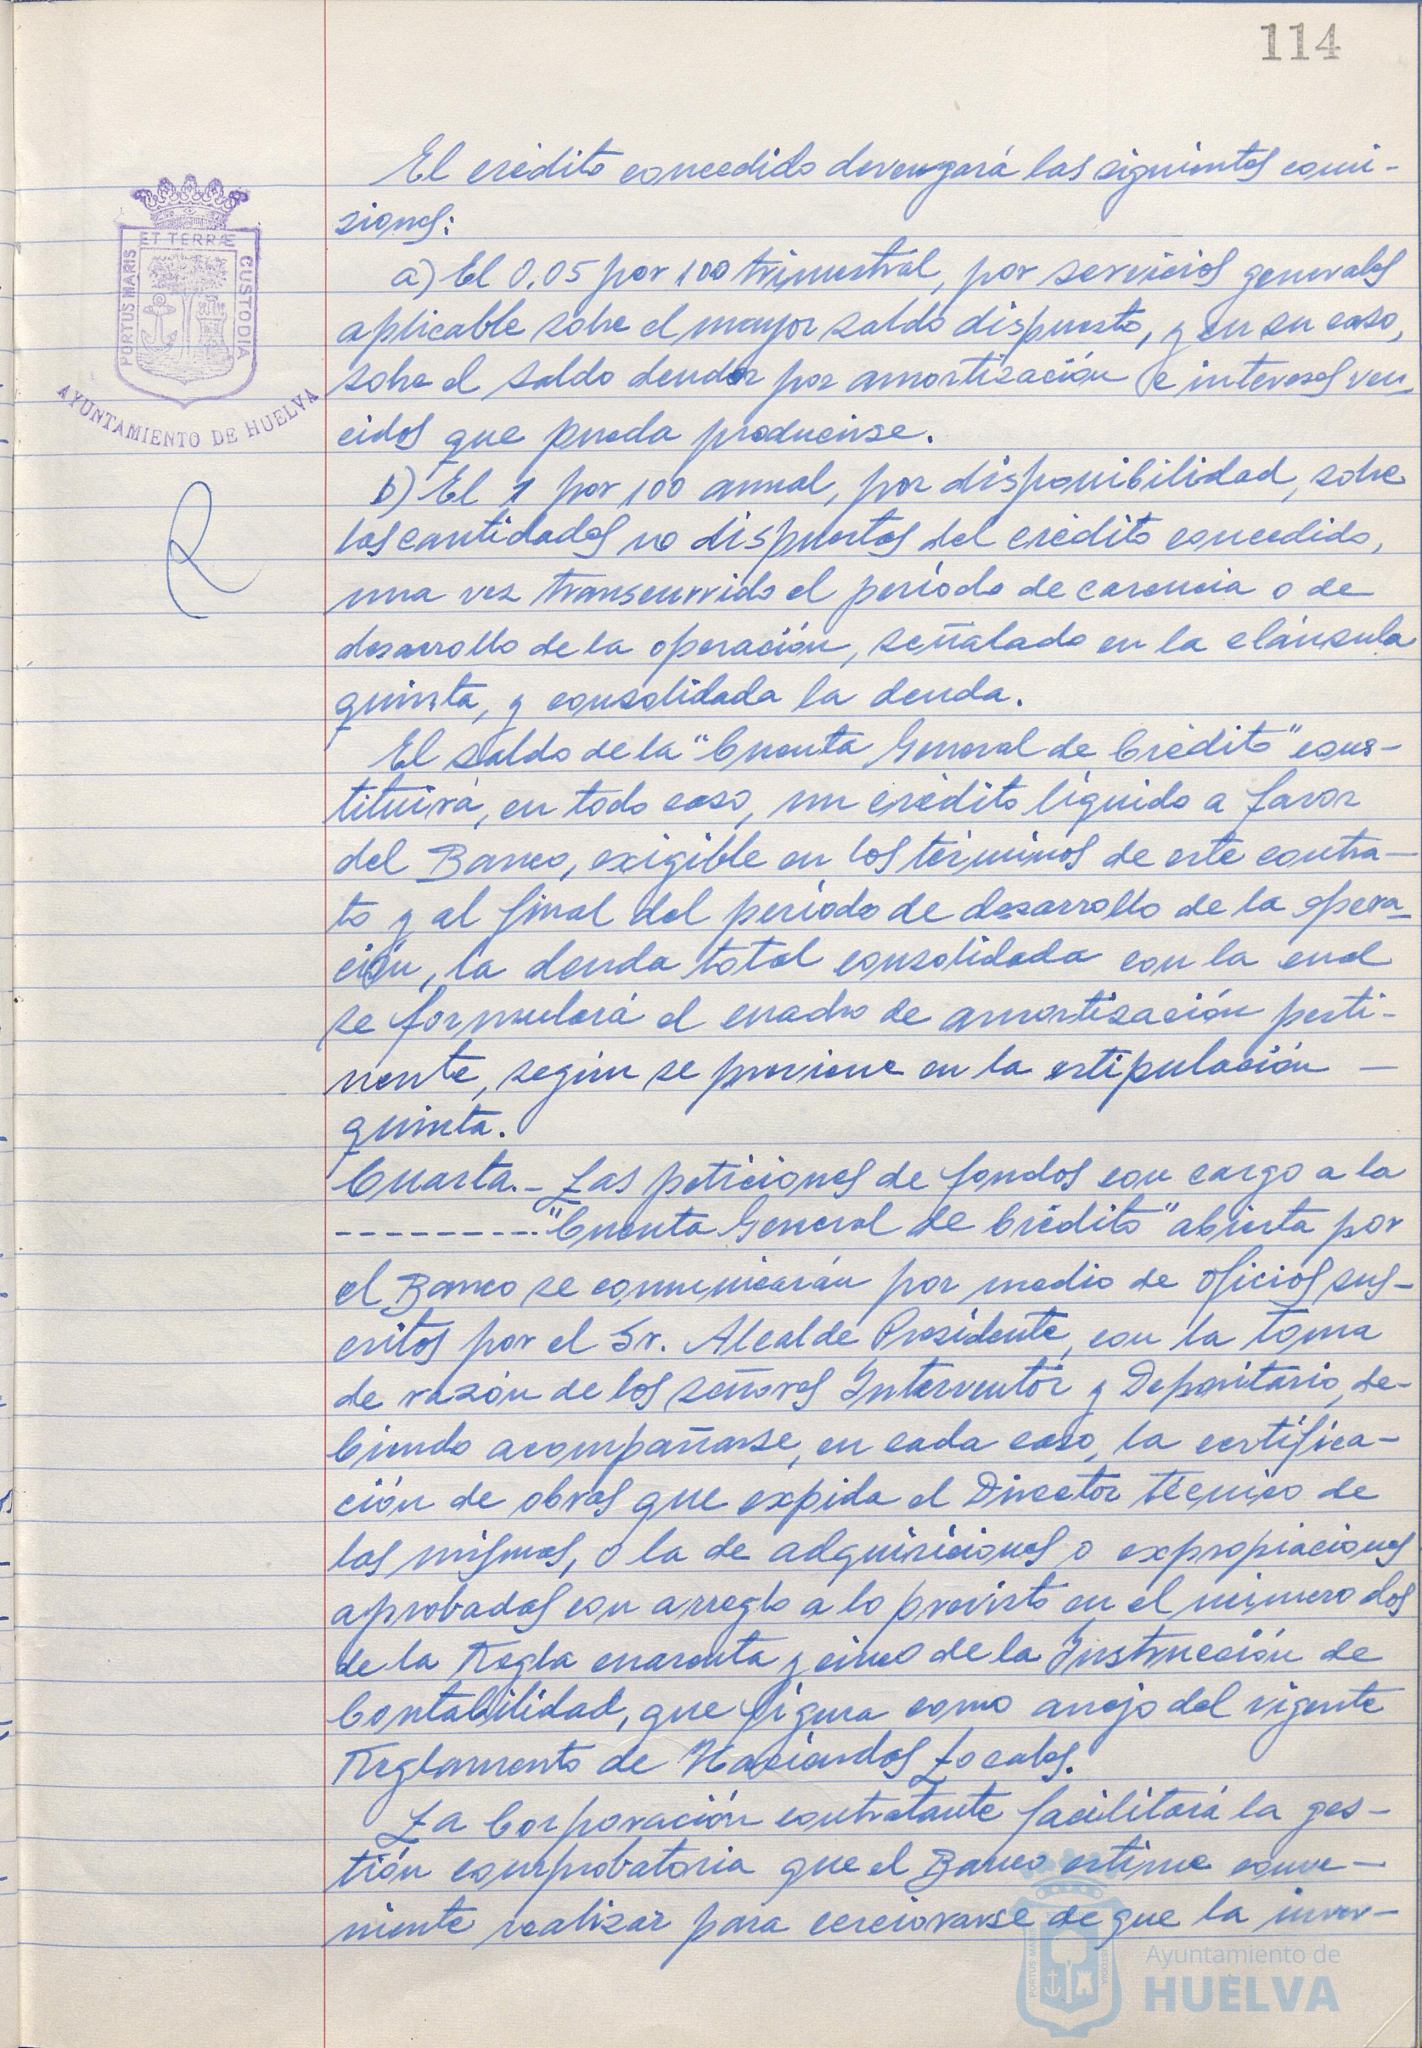 114
El crédito concedido devengará las siguientes comi-
siones:
a) El 0,05 por 100 trimestral, por servicios generales
aplicable sobre el mayor saldo dispuesto, y en su caso,
sobre el saldo deudor por amortización e intereses ven-
cidos que pueda producirse.
b) El 1 por 100 anual, por disponibilidad, sobre
las cantidades no dispuestas del crédito concedido,
una vez transcurrido el período de carencia o de
desarrollo de la operación, señalado en la cláusula
quinta, y consolidada la deuda.
El saldo de la "Cuenta General de Crédito" cons-
tituirá, en todo caso, un crédito líquido a favor
del Banco, exigible en los términos de este contra-
to y al final del período de desarrollo de la opera-
ción, la deuda total consolidada con la cual
se formulará el cuadro de amortización perti-
nente, según se previene en la estipulación —
quinta.
Cuarta.- Las peticiones de fondos con cargo a la
---------- "Cuenta General de Crédito" abierta por
el Banco se comunicarán por medio de oficios sus-
critos por el Sr. Alcalde Presidente, con la toma
de razón de los señores Interventor y Depositario, de-
biendo acompañarse, en cada caso, la certifica-
ción de obras que expida el Director técnico de
las mismas, o la de adquisiciones o expropiaciones
aprobadas con arreglo a lo previsto en el número dos
de la Regla cuarenta y cinco de la Instrucción de
Contabilidad, que figura como anejo del vigente
Reglamento de Haciendas Locales.
La Corporación contratante facilitará la ges-
tión comprobatoria que el Banco estime conve-
niente realizar para cerciorarse de que la inver-
PORTUS MARIS
ET TERRÆ
CUSTODIA
AYUNTAMIENTO DE HUELVA
Ayuntamiento de
HUELVA